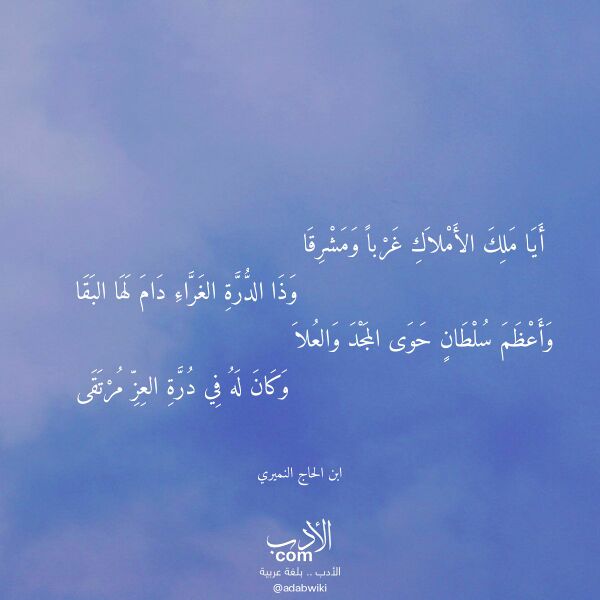 أَيَا مَلِكَ الأَمْلاَكِ غَرْباً وَمَشْرِقَا
وَذَا الدُّرَّةِ الغَرَّاءِ دَامَ لَهَا البَقَا
وَأَعْظَمَ سُلْطَانٍ حَوَى المَجْدَ وَالعُلاَ
وَكَانَ لَهُ فِي دُرَّةِ العِزِّ مُرْتَقَى
ابن الحاج النميري
الأدب
com
الأدب .. بلغة عربية
@adabwiki